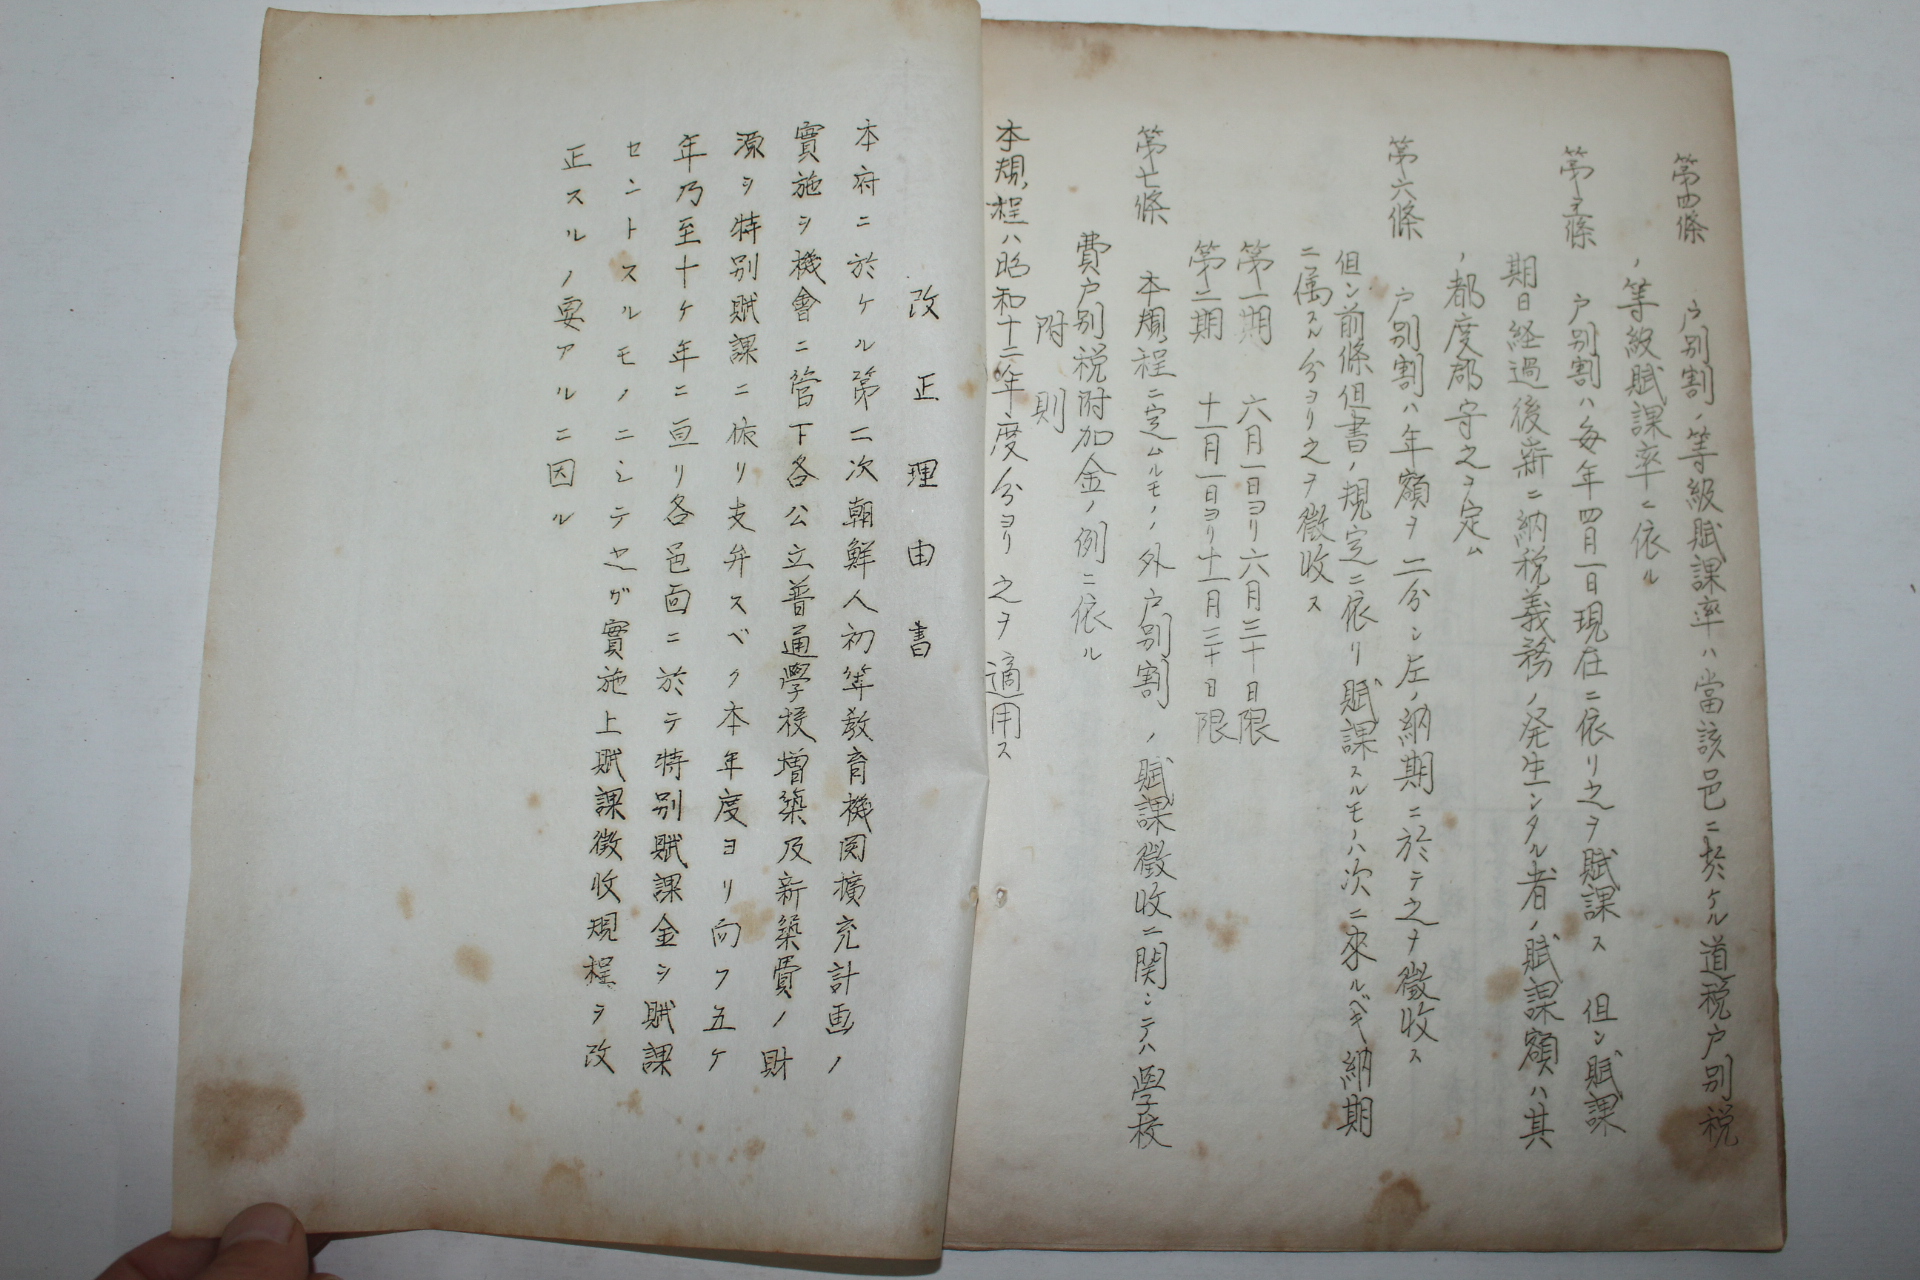 第四條　戸別割ノ等級賦課率ハ當該邑ニ於ケル道税戸別税
ノ等級賦課率ニ依ル
第五條　戸別割ハ毎年四月一日現在ニ依リ之ヲ賦課ス　但シ賦課
期日経過後新ニ納税義務ノ発生シタル者ノ賦課額ハ其
ノ都度郡守之ヲ定ム
第六條　戸別割ハ年額ヲ二分シ左ノ納期ニ於テ之ヲ徴收ス
但シ前條但書ノ規定ニ依リ賦課スルモノハ次ニ來ルベキ納期
ニ属スル分ヨリ之ヲ徴收ス
第一期　六月一日ヨリ六月三十日限
第二期　十一月一日ヨリ十一月三十日限
第七條　本規程ニ定ムルモノノ外戸別割ノ賦課徴收ニ関シテハ學校
費戸別税附加金ノ例ニ依ル
附則
本規程ハ昭和十二年度分ヨリ之ヲ適用ス
改正理由書
本府ニ於ケル第二次朝鮮人初等教育機関擴充計画ノ
實施ヲ機會ニ管下各公立普通學校増築及新築費ノ財
源ヲ特別賦課ニ依リ支弁スベク本年度ヨリ向フ五ケ
年乃至十ケ年ニ亘リ各邑面ニ於テ特別賦課金ヲ賦課
セントスルモノニシテ之ガ實施上賦課徴收規程ヲ改
正スルノ要アルニ因ル